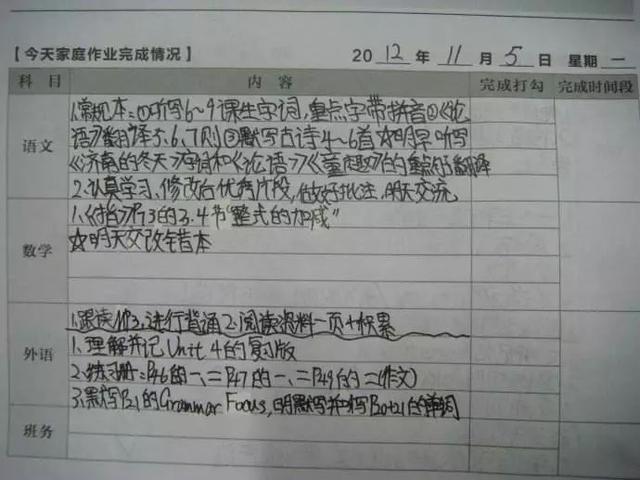 【今天家庭作业完成情况】 2012年11月5日 星期一
科目 内容 完成打勾 完成时间段
语文
1.常规本:①听写6~9课生字词,重点字带拼音②《论
语》翻译5、6、7则③默写古诗4~6首☆明早听写
《济南的冬天》字词和《论语》《董趣》的重点句翻译
2.认真学习、修改台优秀片段,做好批注,明天交流
数学
1.《指》P13的3.4节"整式的加减"
☆明天交改错本
外语
1.跟读MP3,进行背诵2.阅读资料一页+积累
1.理解并记Unit 4的复习版
2.练习册:P46的一、二P47的一、二P49的二(作文)
3.默写P21的Grammar Focus,明默写并听写P20+21的单词
班务